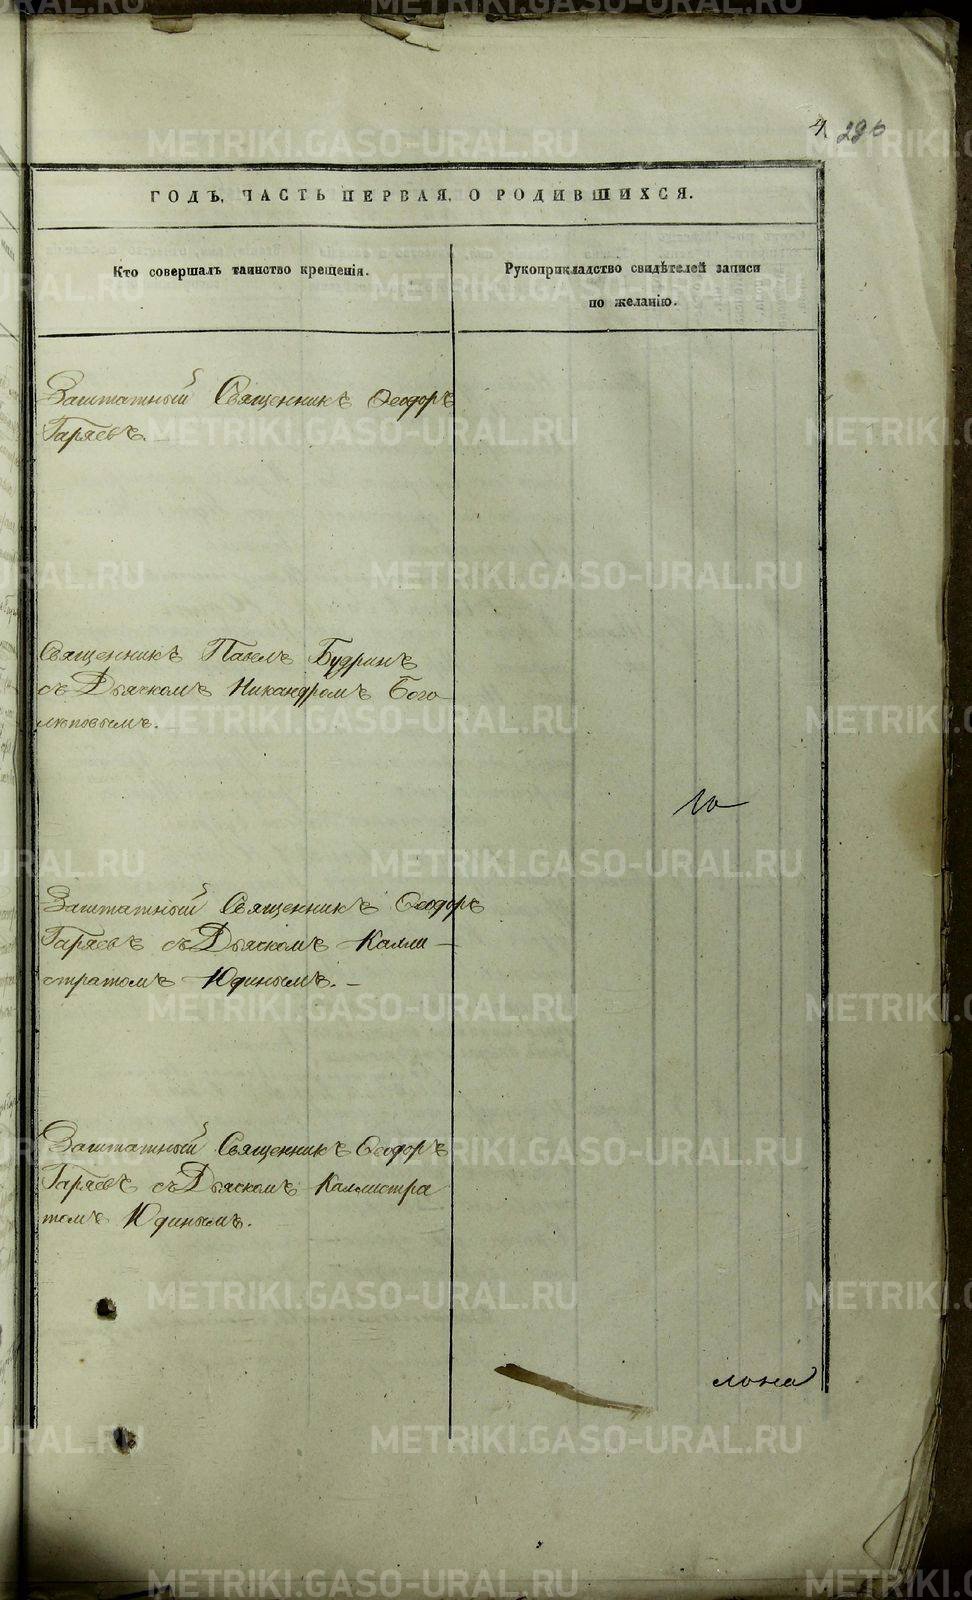 4 296
ГОДЪ, ЧАСТЬ ПЕРВАЯ, О РОДИВШИХСЯ.
Кто совершалъ таинство крещенія.
Рукоприкладство свидѣтелей записи
по желанію.
Заштатный Священникъ Ѳеодоръ
Гаряевъ.
Священникъ Павелъ Будринъ
съ Дьячкомъ Никандромъ Бого
люповымъ.
Заштатный Священникъ Ѳеодоръ
Гаряевъ съ Дьяскомъ Калли
стратомъ Юдинымъ.
Заштатный Священникъ Ѳеодоръ
Гаряевъ съ Дьяскомъ Каллистра
томъ Юдинымъ.
METRIKI.GASO-URAL.RU